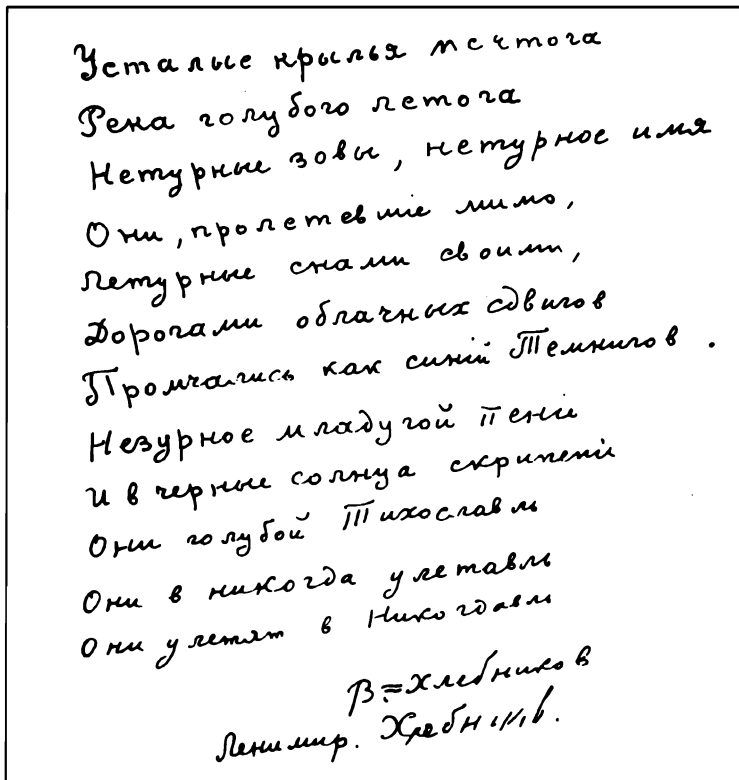 Усталые крылья мечтога
Река голубого летога
Нетурные зовы, нетурное имя
Они, пролетевшіе мимо,
Летурные снами своими,
Дорогами облачных сдвигов
Промчались как синій Темнигов.
Незурное младугой пеніе
И в черные солнца скрипеніе
Они голубой Тихославль
Они в никогда улетавль
Они улетят в Никогдавль
В=Хлебников
Хлебников.